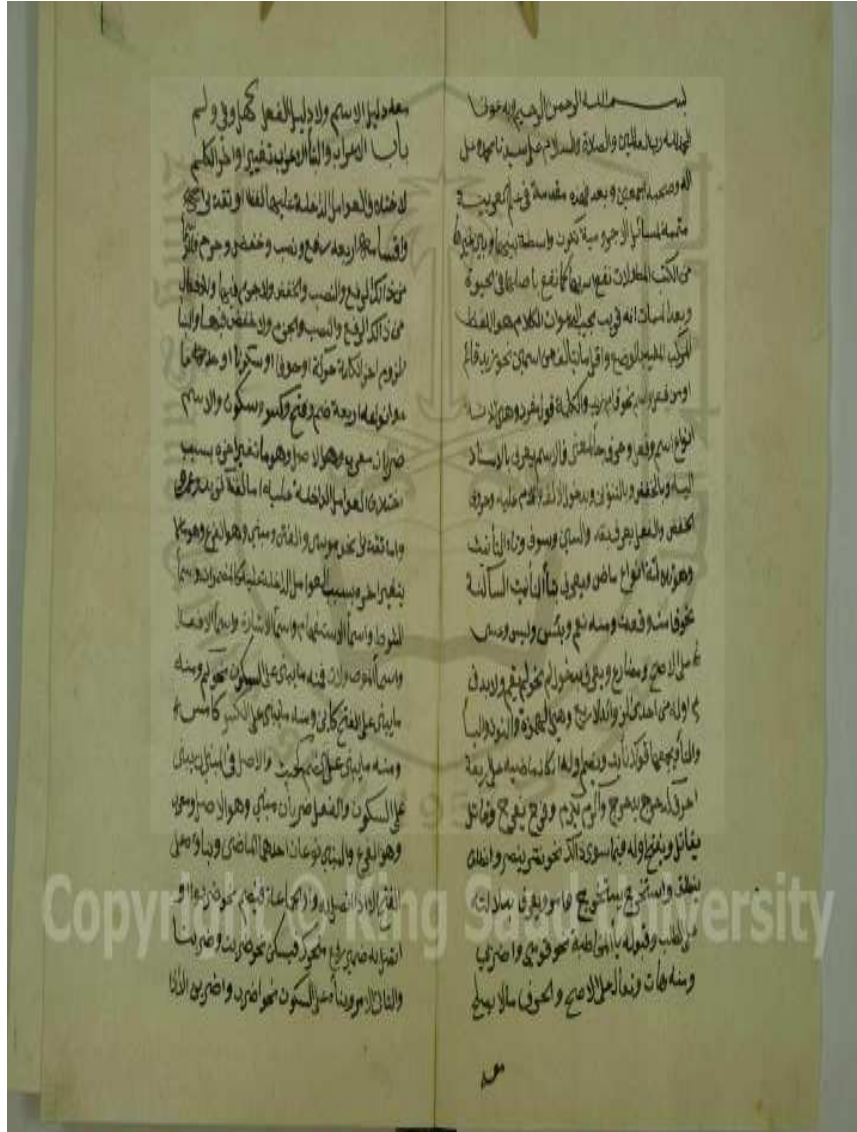 بسم الله الرحمن الرحيم وبه عوننا
الحمد لله رب العالمين والصلاة والسلام على سيدنا محمد وعلى
اله وصحبه اجمعين وبعد فهذه مقدمة في علم العربية
متممة لمسائل الاجرومية تكون واسطة بينها وبين غيرها
من الكتب المطولات نفع الله بها كما نفع باصلها في الحيوة
وبعد الممات انه قريب مجيب الدعوات الكلام هو اللفظ
المركب المفيد بالوضع واقل ما يتالف من اسمين نحو زيد قائم
او من فعل واسم نحو قام زيد والكلمة قول مفرد وهي ثلاثة
انواع اسم وفعل وحرف جاء لمعنى فالاسم يعرف بالاسناد
اليه وبالخفض وبالتنوين وبدخول الالف واللام عليه وحروف
الخفض والفعل يعرف بقد والسين وسوف وتاء التأنيث
وهو ثلاثة انواع ماض ويعرف بتاء التأنيث الساكنة
نحو قامت وقعدت ومنه نعم وبئس وليس وعسى
على الاصح ومضارع ويعرف بدخول لم نحو لم يقم ولا بد في
اوله من احدى الزوائد الاربع وهي الهمزة والنون والياء
والتاء يجمعها قولك نأيت ويضم اوله ان كان ماضيه على اربعة
احرف كدحرج يدحرج واكرم يكرم وفرح يفرح وقاتل
يقاتل ويفتح اوله فيما سوى ذالك نحو نصر ينصر وانطلق
ينطلق واستخرج يستخرج وامر ويعرف بدلالته
على الطلب وقبوله ياء المخاطبة نحو قومي واضربي
ومنه هات وتعال على الاصح والحرف ما لا يصلح
معه
معه دليل الاسم ولا دليل الفعل كهل وفي ولم
باب الاعراب والبناء الاعراب تغيير اواخر الكلم
لاختلاف العوامل الداخلة عليها لفظا او تقديرا
واقسامه اربعة رفع ونصب وخفض وجزم فللاسماء
من ذالك الرفع والنصب والخفض ولا جزم فيها وللافعال
من ذالك الرفع والنصب والجزم ولا خفض فيها والبناء
لزوم اخر الكلمة حركة او سكونا
وانواعه اربعة ضم وفتح وكسر وسكون والاسم
ضربان معرب وهو الاصل وهو ما تغير اخره بسبب
اختلاف العوامل الداخلة عليه اما لفظا كزيد وعمرو
واما تقديرا نحو موسى والفتى ومبني وهو الفرع وهو ما لا
يتغير اخره بسبب العوامل الداخلة عليه كالمضمرات واسماء
الشرط واسماء الاستفهام واسماء الاشارة واسماء الافعال
واسماء الموصولات فمنه ما يبنى على السكون نحو كم ومنه
ما يبنى على الفتح كاين ومنه ما يبنى على الكسر كامس
ومنه ما يبنى على الضم كحيث والاصل في المبني ان يبنى
على السكون والفعل ضربان مبني وهو الاصل ومعرب
وهو الفرع والمبني نوعان احدهما الماضي وبناؤه على
الفتح الا اذا اتصل به واو الجماعة فيضم نحو ضربوا او
اتصل به ضمير رفع متحرك فيسكن نحو ضربت وضربنا
والثاني الامر وبناؤه على السكون نحو اضرب واضربن الا اذا
Copyright © King Saud University